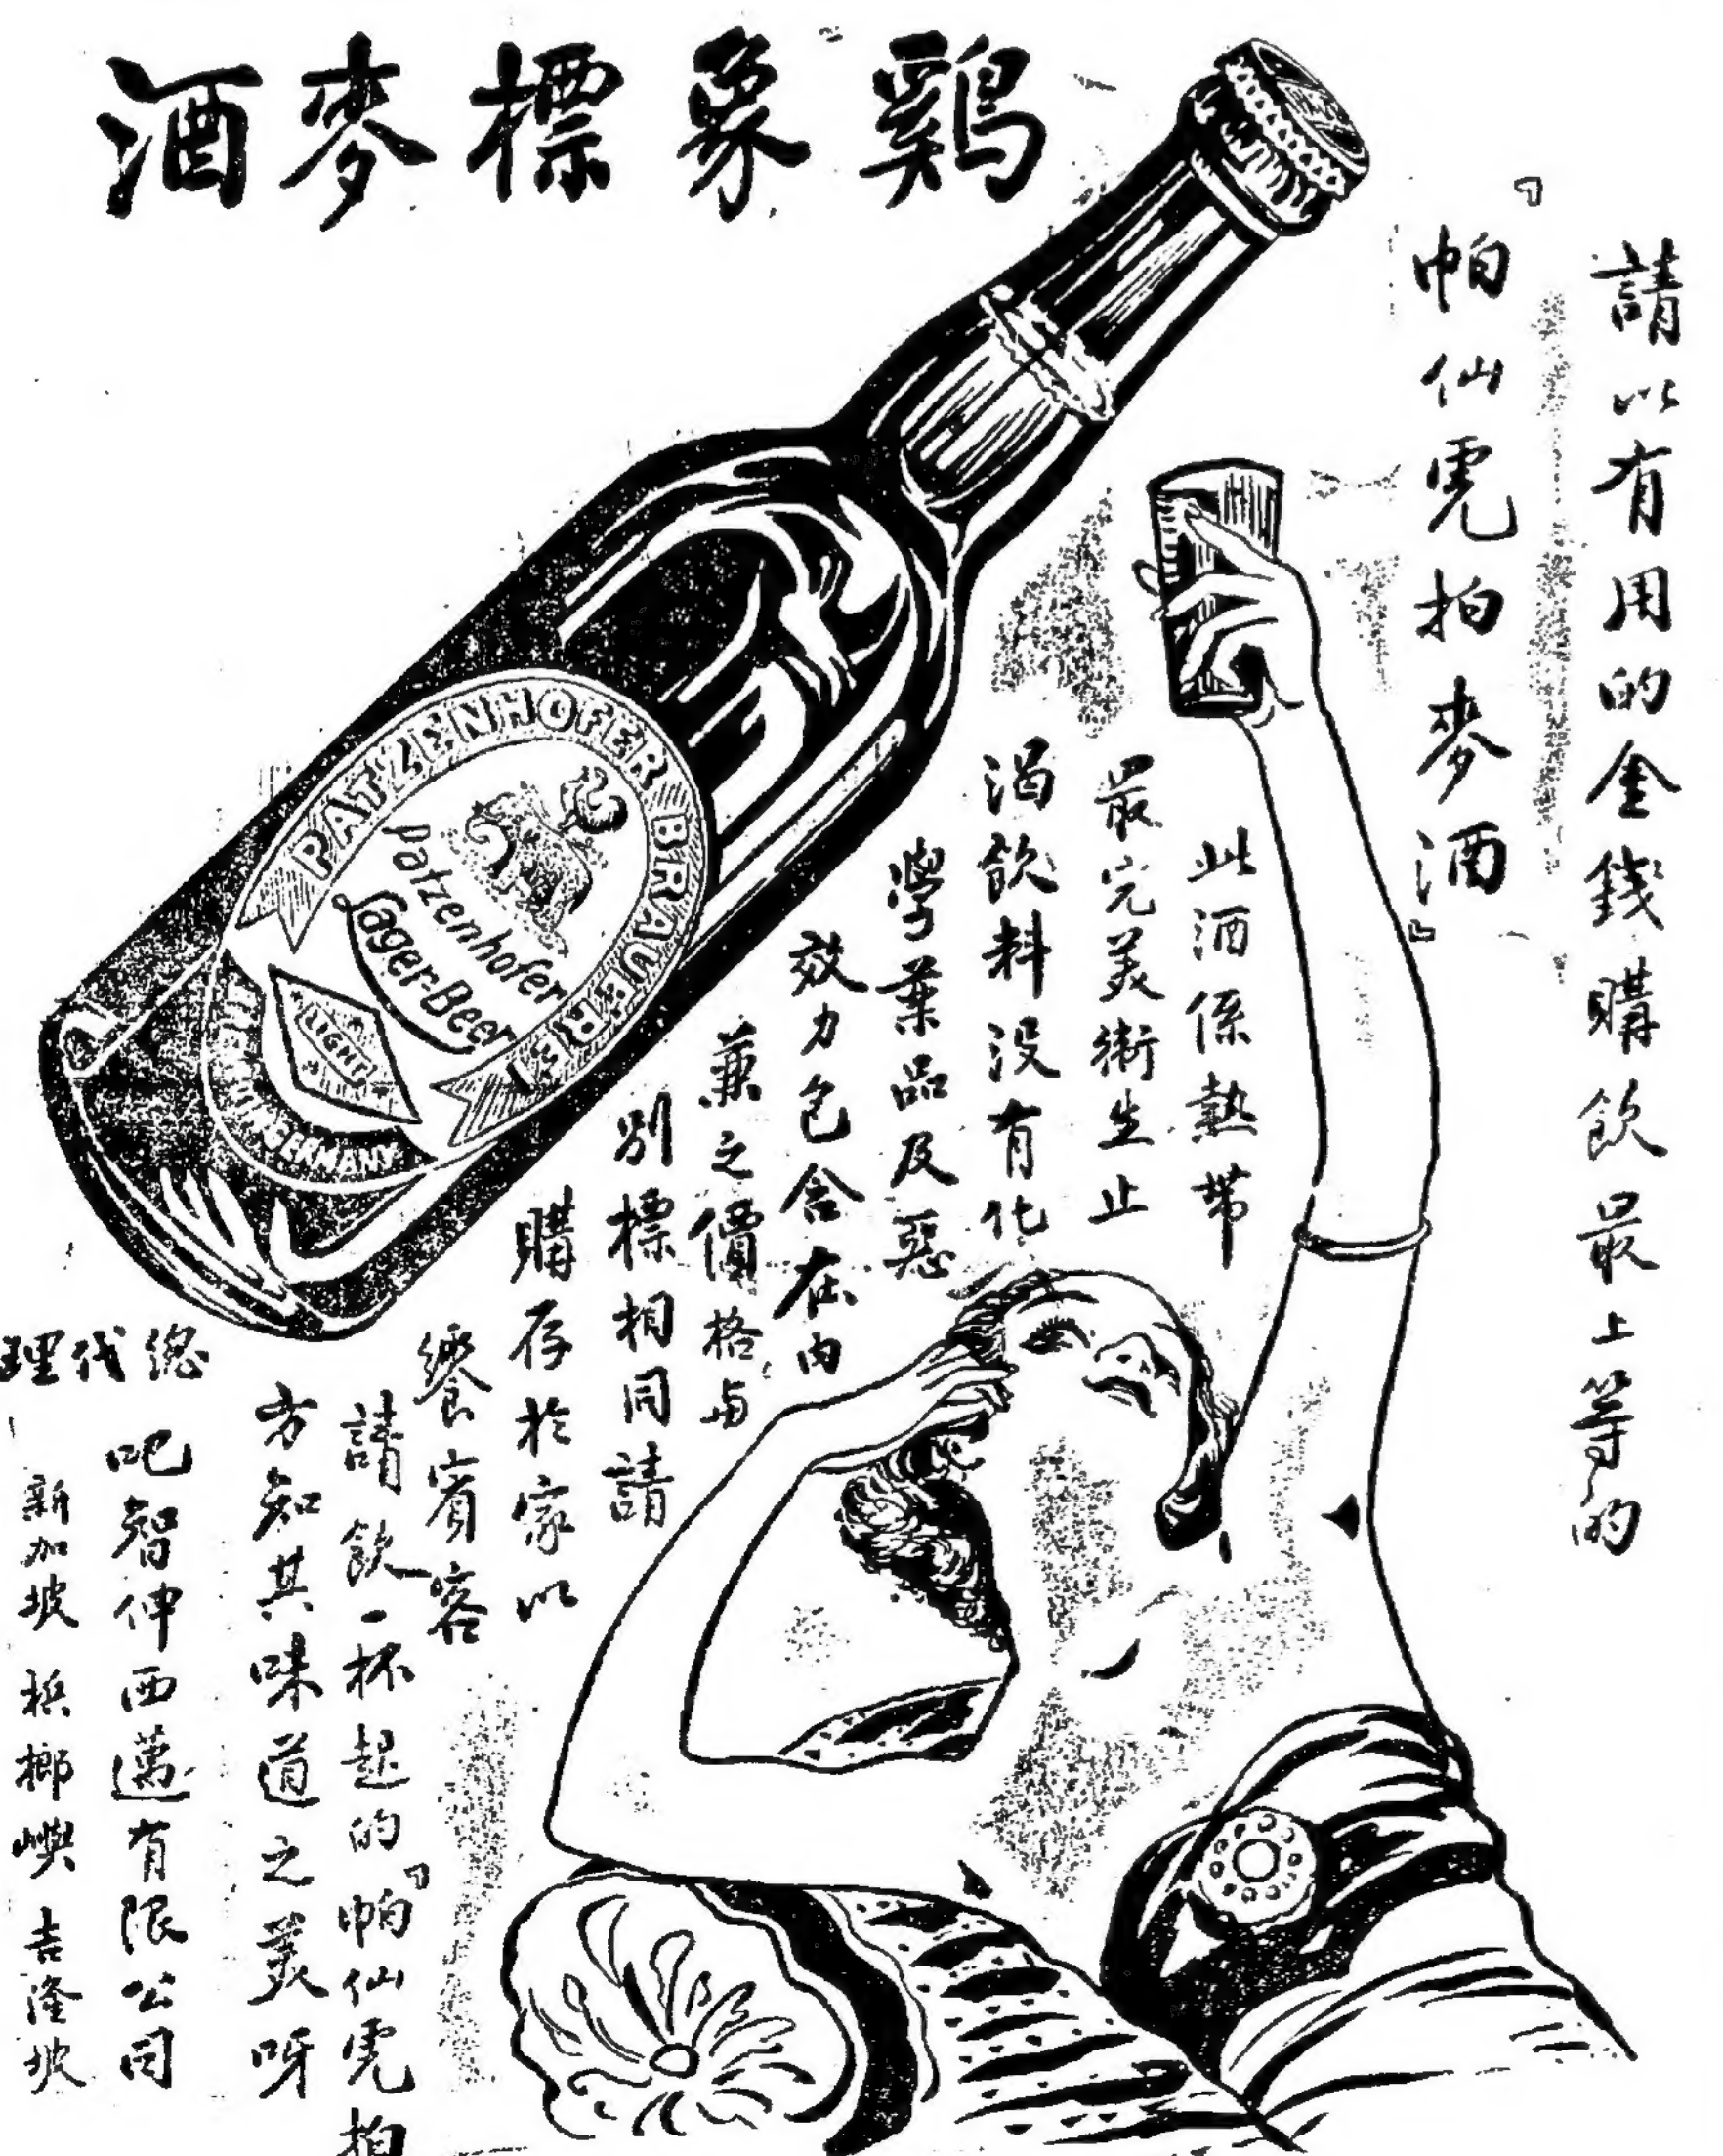 鷄象標麥酒
請以有用的金錢購飲最上等的
『帕仙亮拍麥酒』
此酒係熱带
最完美衛生止
渴飲料没有化
學葉品及惡
效力包含在内
兼之價格与
别標相同請
購存於家以
饗賓客
請飲一杯起的『帕仙亮拍
方知其味道之美呀
總代理
吧智伸西邁有限公司
新加坡 梹榔嶼 吉隆坡
PATZENHOFER BRAUEREI
Patzenhofer
Lager-Beer
LIGHT
GERMANY